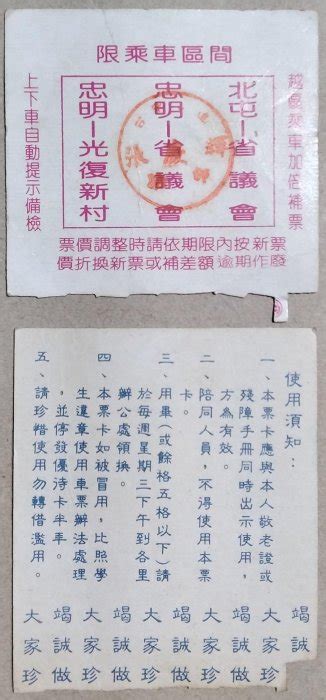 限乘車區間
越區乘車加倍補票
北屯—省議會
忠明—省議會
忠明—光復新村
上下車自動提示備檢
票價調整時請依期限內按新票
價折換新票或補差額逾期作廢
使用須知：
一、本票卡應與本人敬老證或
殘障手冊同時出示使用，
方為有效。
二、陪同人員，不得使用本票
卡。
三、用畢(或餘格五格以下)請
於每週星期三下午到各里
辦公處領換。
四、本票卡如被冒用，比照學
生違章使用車票辦法處理
，並停發優待卡半年。
五、請珍惜使用勿轉借濫用。
竭誠
大家珍
竭誠做
大家珍
竭誠做
大家珍
竭誠做
大家珍